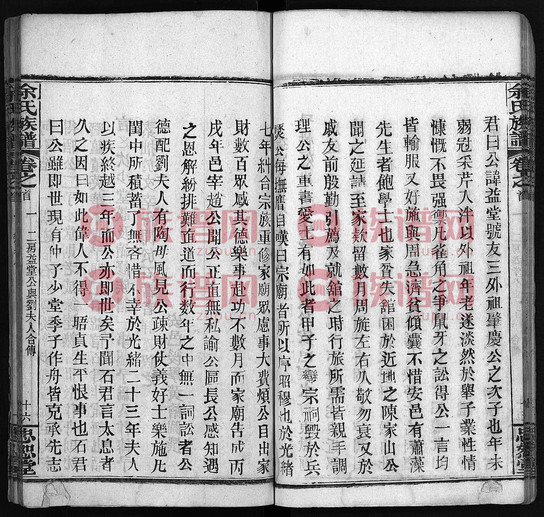 君曰公諱益堂號友三外祖肇慶公之次子也年未
弱冠采芹人泮以外祖年老遂淡然於舉子業性情
慷慨不畏强禦凡雀角之爭鼠牙之訟得公一言均
皆輸服又好施與周急濟貧傾囊不惜安邑有蕭藻
先生者飽學士也家貧失館困於近地之陳家山公
聞之延請至家欵留數月周旋左右人敬勿衰又於
戚友前殷勤引薦及就舘之時行旅所需皆親手調
物公之重書愛士有如此者甲子之變宗祠毁於兵
燹公每撫膺自嘆曰宗廟者所以序昭穆也於光緒
七年糾合宗族重修家廟眾慮事大費煩公自出家
財數百眾感其德樂事赴功不數月而家廟告成丙
戌年邑宰趙公聞公正直無私諭公爲區長公感知遇
之恩解紛排難直道而行數年之中無一詞訟者公
德配劉夫人有陶母風見公疎財仗義好士樂施凡
閨中所積蓄了無吝惜不幸於光緒二十三年夫人
以疾終越三年而公亦即世矣予聞石君言太息者
久之因曰如此偉人不得一晤眞生平恨事也石君
曰公雖即世現有仲子少堂季子作舟皆克承先志
余氏族譜
卷之首
一
二房益堂公與劉夫人合傳
十六
忠恕堂
族谱网